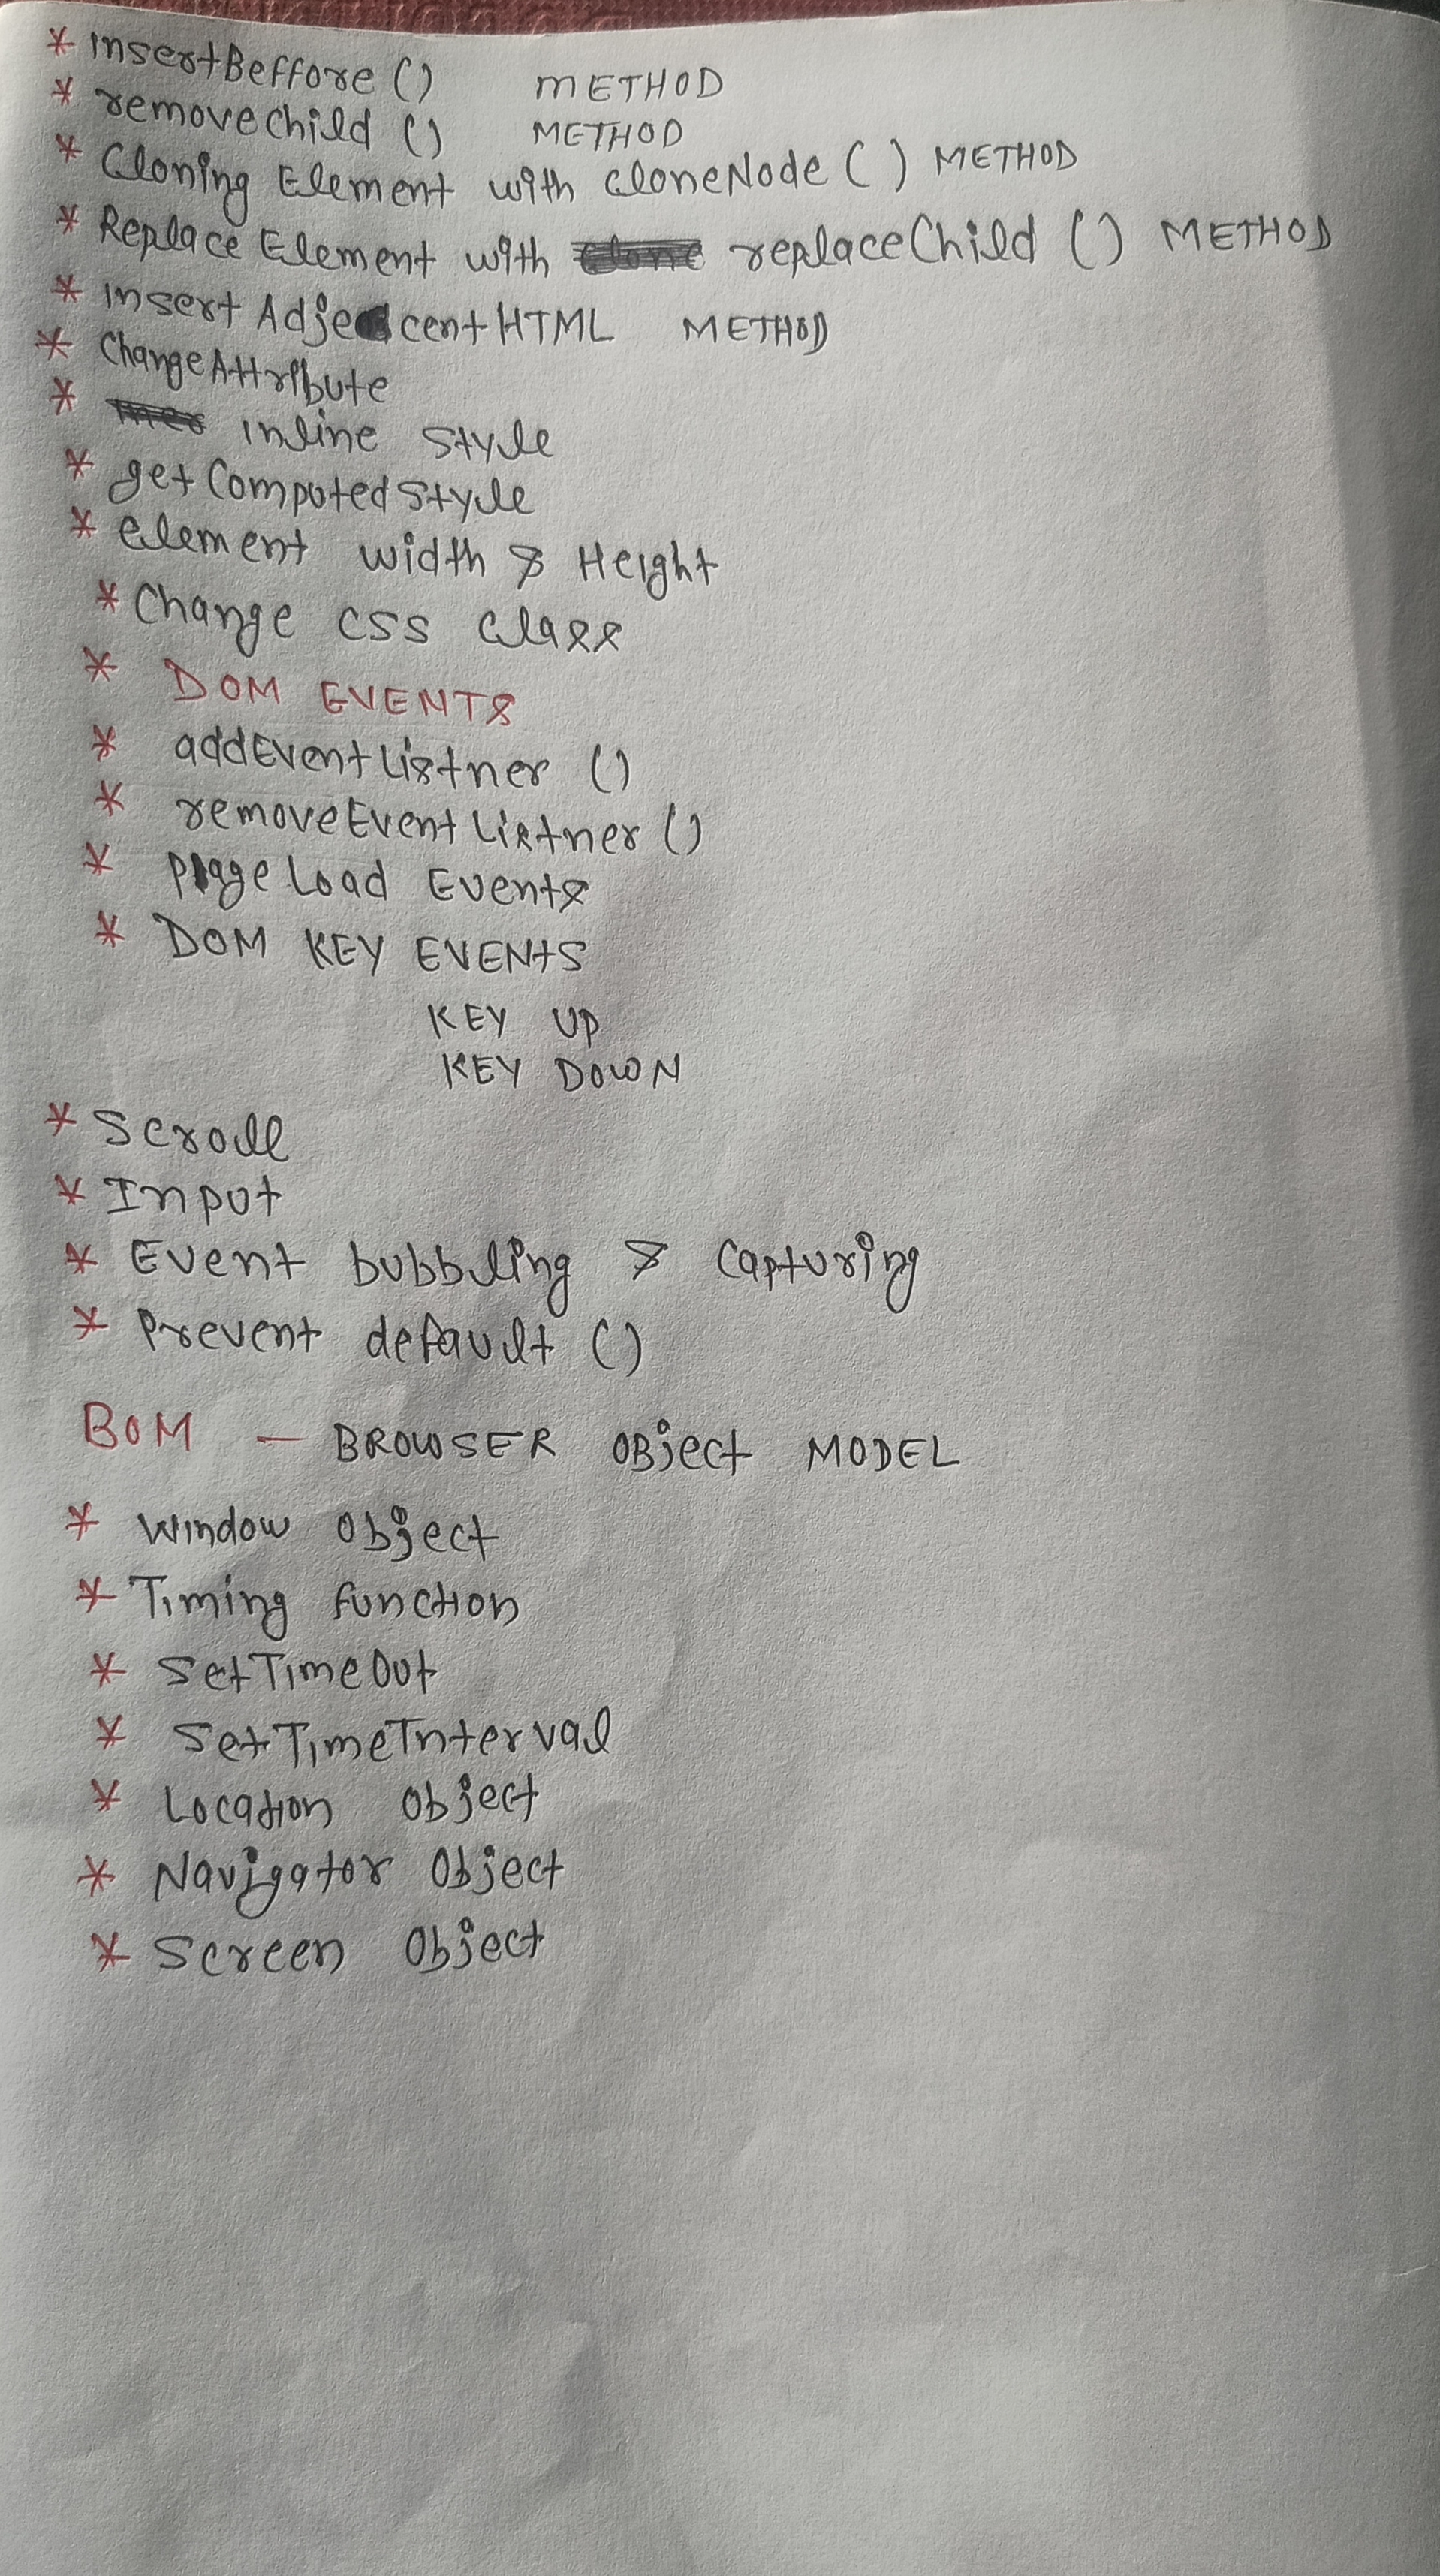 * InsertBeffore () METHOD
* removeChild () METHOD
* Cloning Element with cloneNode () METHOD
* Replace Element with replaceChild () METHOD
* Insert AdjecentHTML METHOD
* ChangeAttribute
* Inline Style
* getComputedStyle
* element width & Height
* Change CSS class
* DOM EVENTS
* addEventListner ()
* removeEventListner ()
* Page Load Events
* DOM KEY EVENTS
KEY UP
KEY DOWN
* Scroll
* Input
* Event bubbling & Capturing
* Prevent default ()
BOM — BROWSER OBject MODEL
* Window Object
* Timing function
* SetTimeOut
* SetTimeInterval
* Location Object
* Navigator Object
* Screen Object